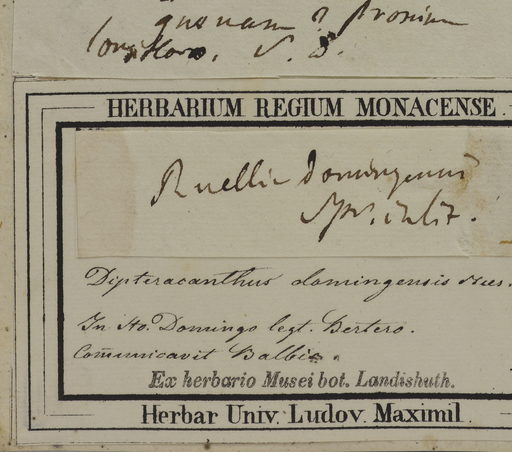 HERBARIUM REGIUM MONACENSE
Ruellia domingensis
Spr. in litt.
Dipteracanthus domingensis Nees.
In Sto. Domingo legt. Bertero.
Com̄unicavit Balbis.
Ex herbario Musei bot. Landishuth.
Herbar Univ. Ludov. Maximil